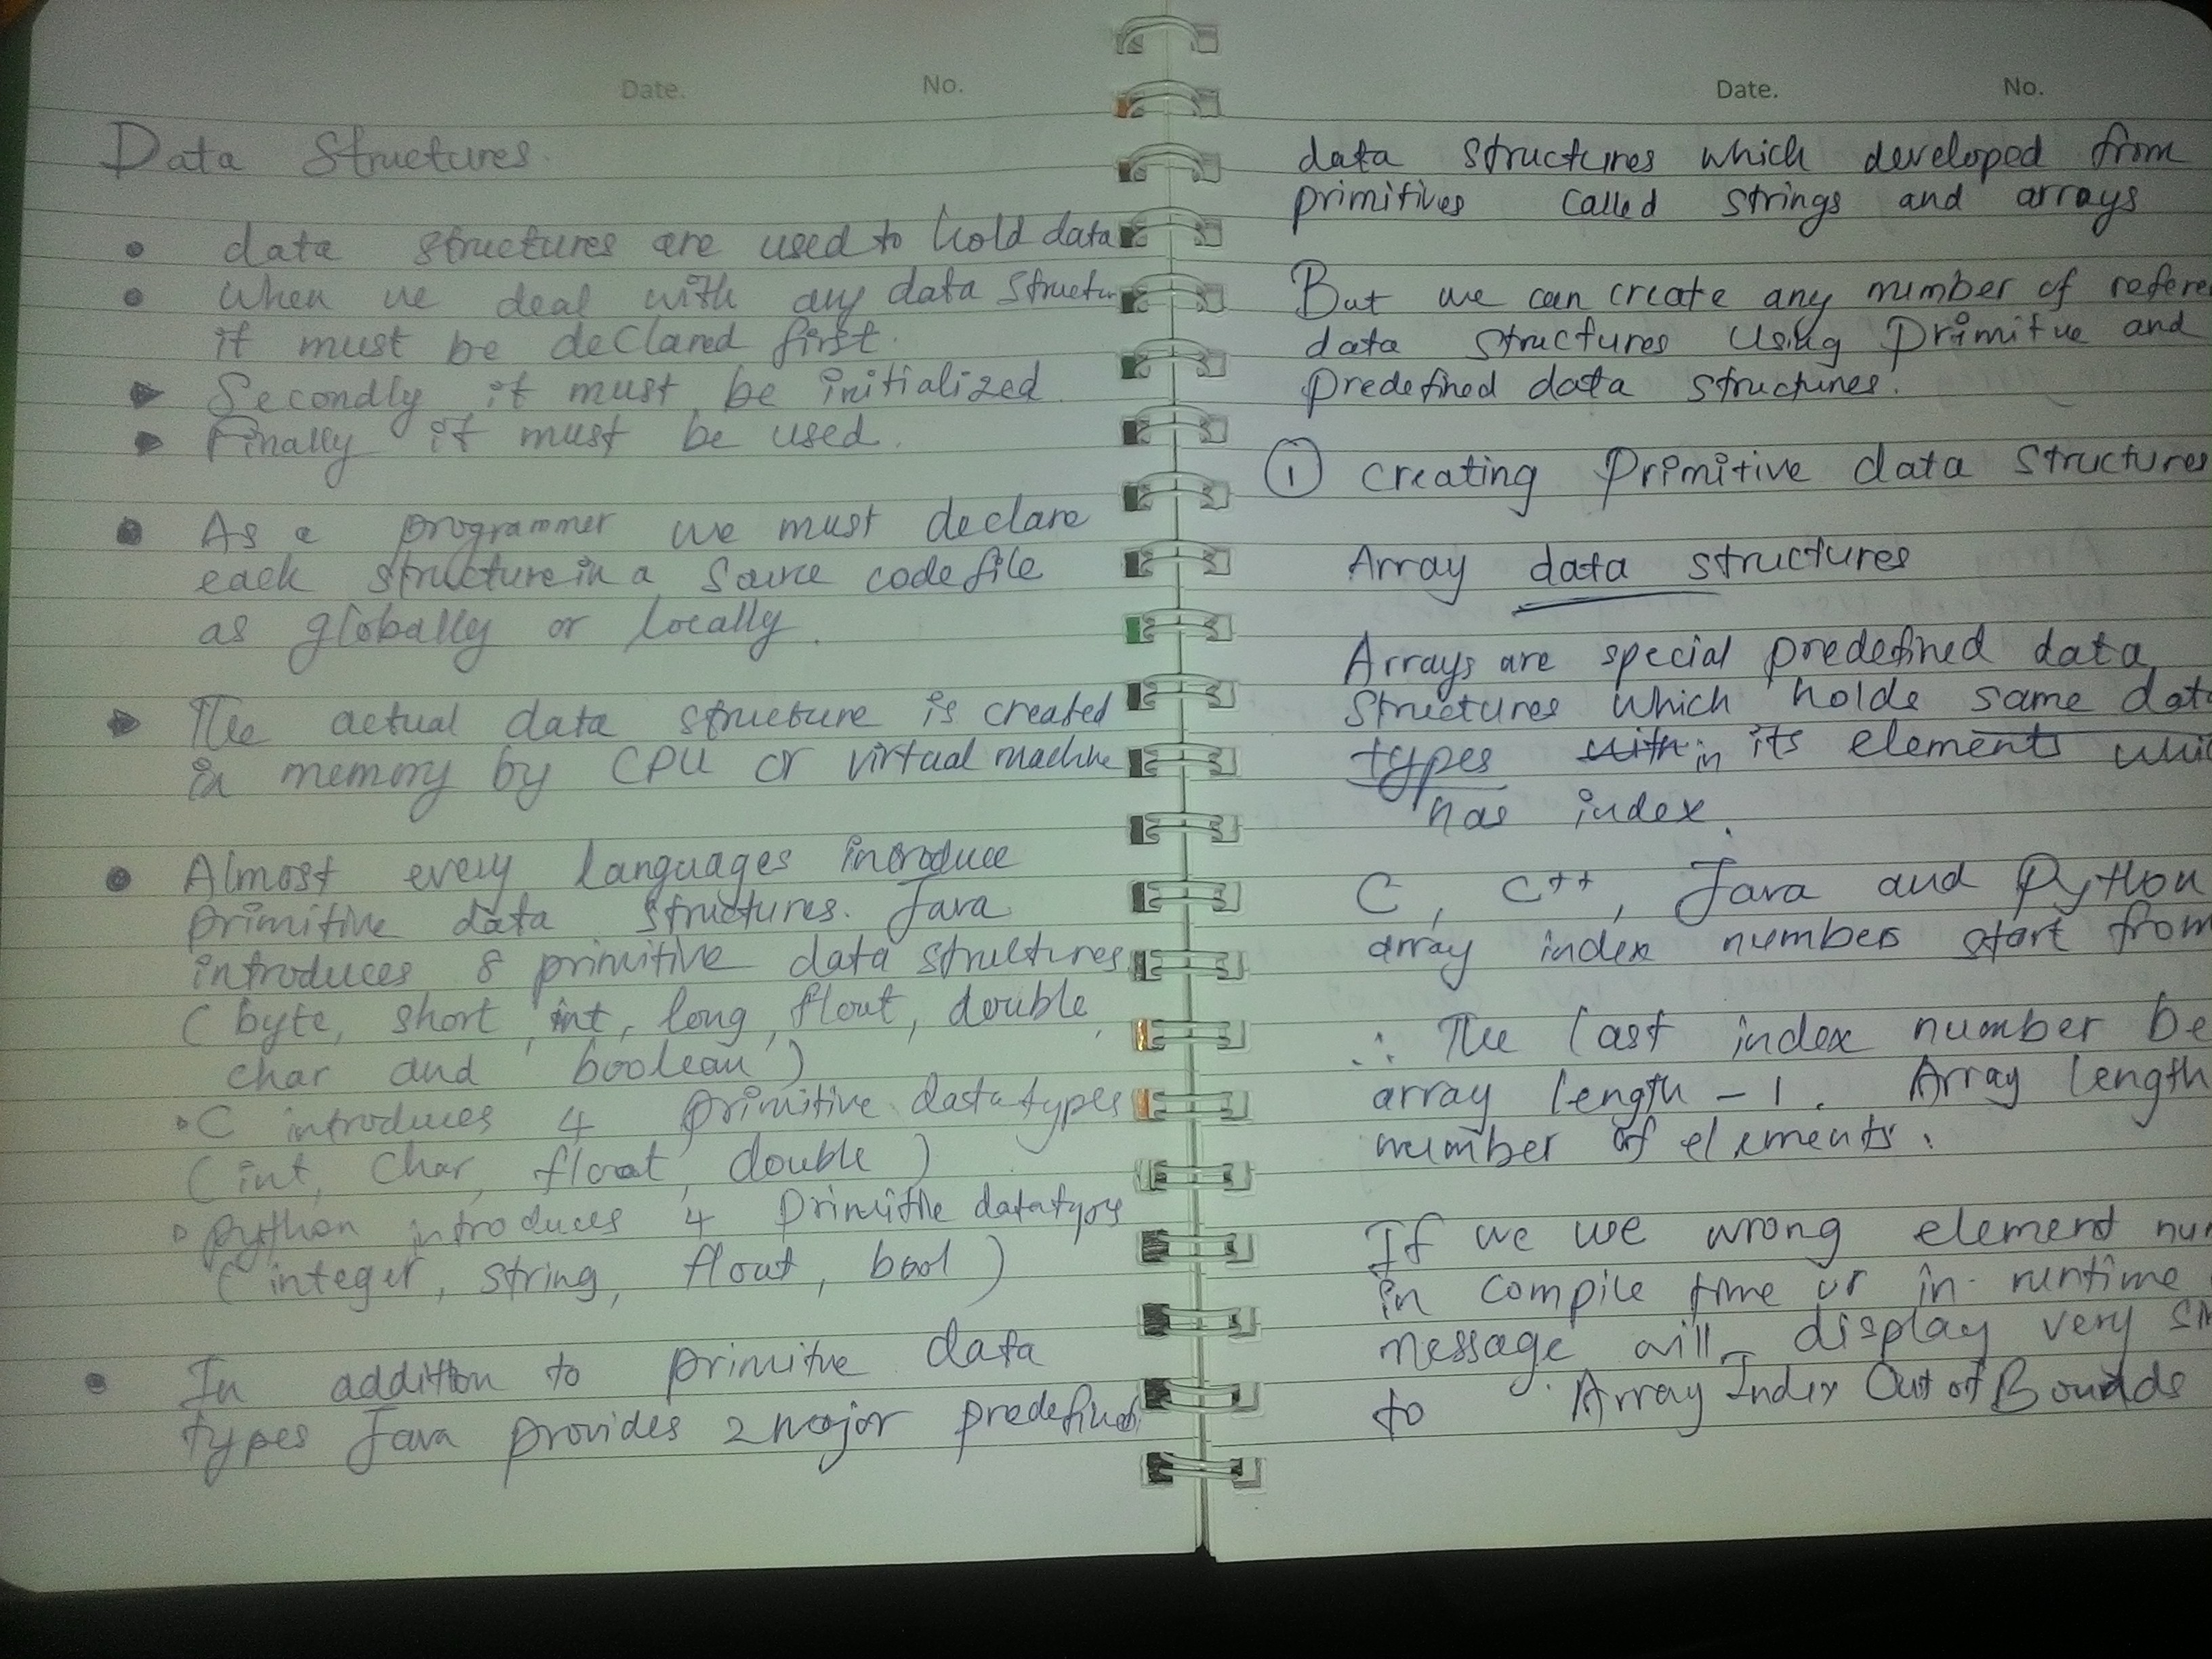 Date. No.
Data Structures.
data structures are used to hold data
when we deal with any data structur
it must be declared first.
Secondly it must be initialized.
Finally it must be used.
As a programmer we must declare
each structure in a source code file
as globally or locally.
The actual data structure is created
in memory by CPU or virtual machine
Almost every languages introduce
primitive data structures. Java
introduces 8 primitive data structures
(byte, short, int, long, float, double,
char and boolean)
C introduces 4 primitive datatypes
(int, char, float, double)
python introduces 4 primitive datatypes
(integer, string, float, bool)
In addition to primitive data
types Java provides 2 major predefined
Date. No.
data structures which developed from
primitives called strings and arrays
But we can create any number of refere
data structures using primitive and
predefined data structures.
① creating primitive data structures
Array data structures
Arrays are special predefined data
structures which holds same dat
types in its elements whi
has index.
C, C++, Java and Python
array index numbers start from
∴ The last index number be
array length - 1. Array length
number of elements.
If we we wrong element nu
in compile time or in runtime
message will display very si
to Array Index Out of Bounds